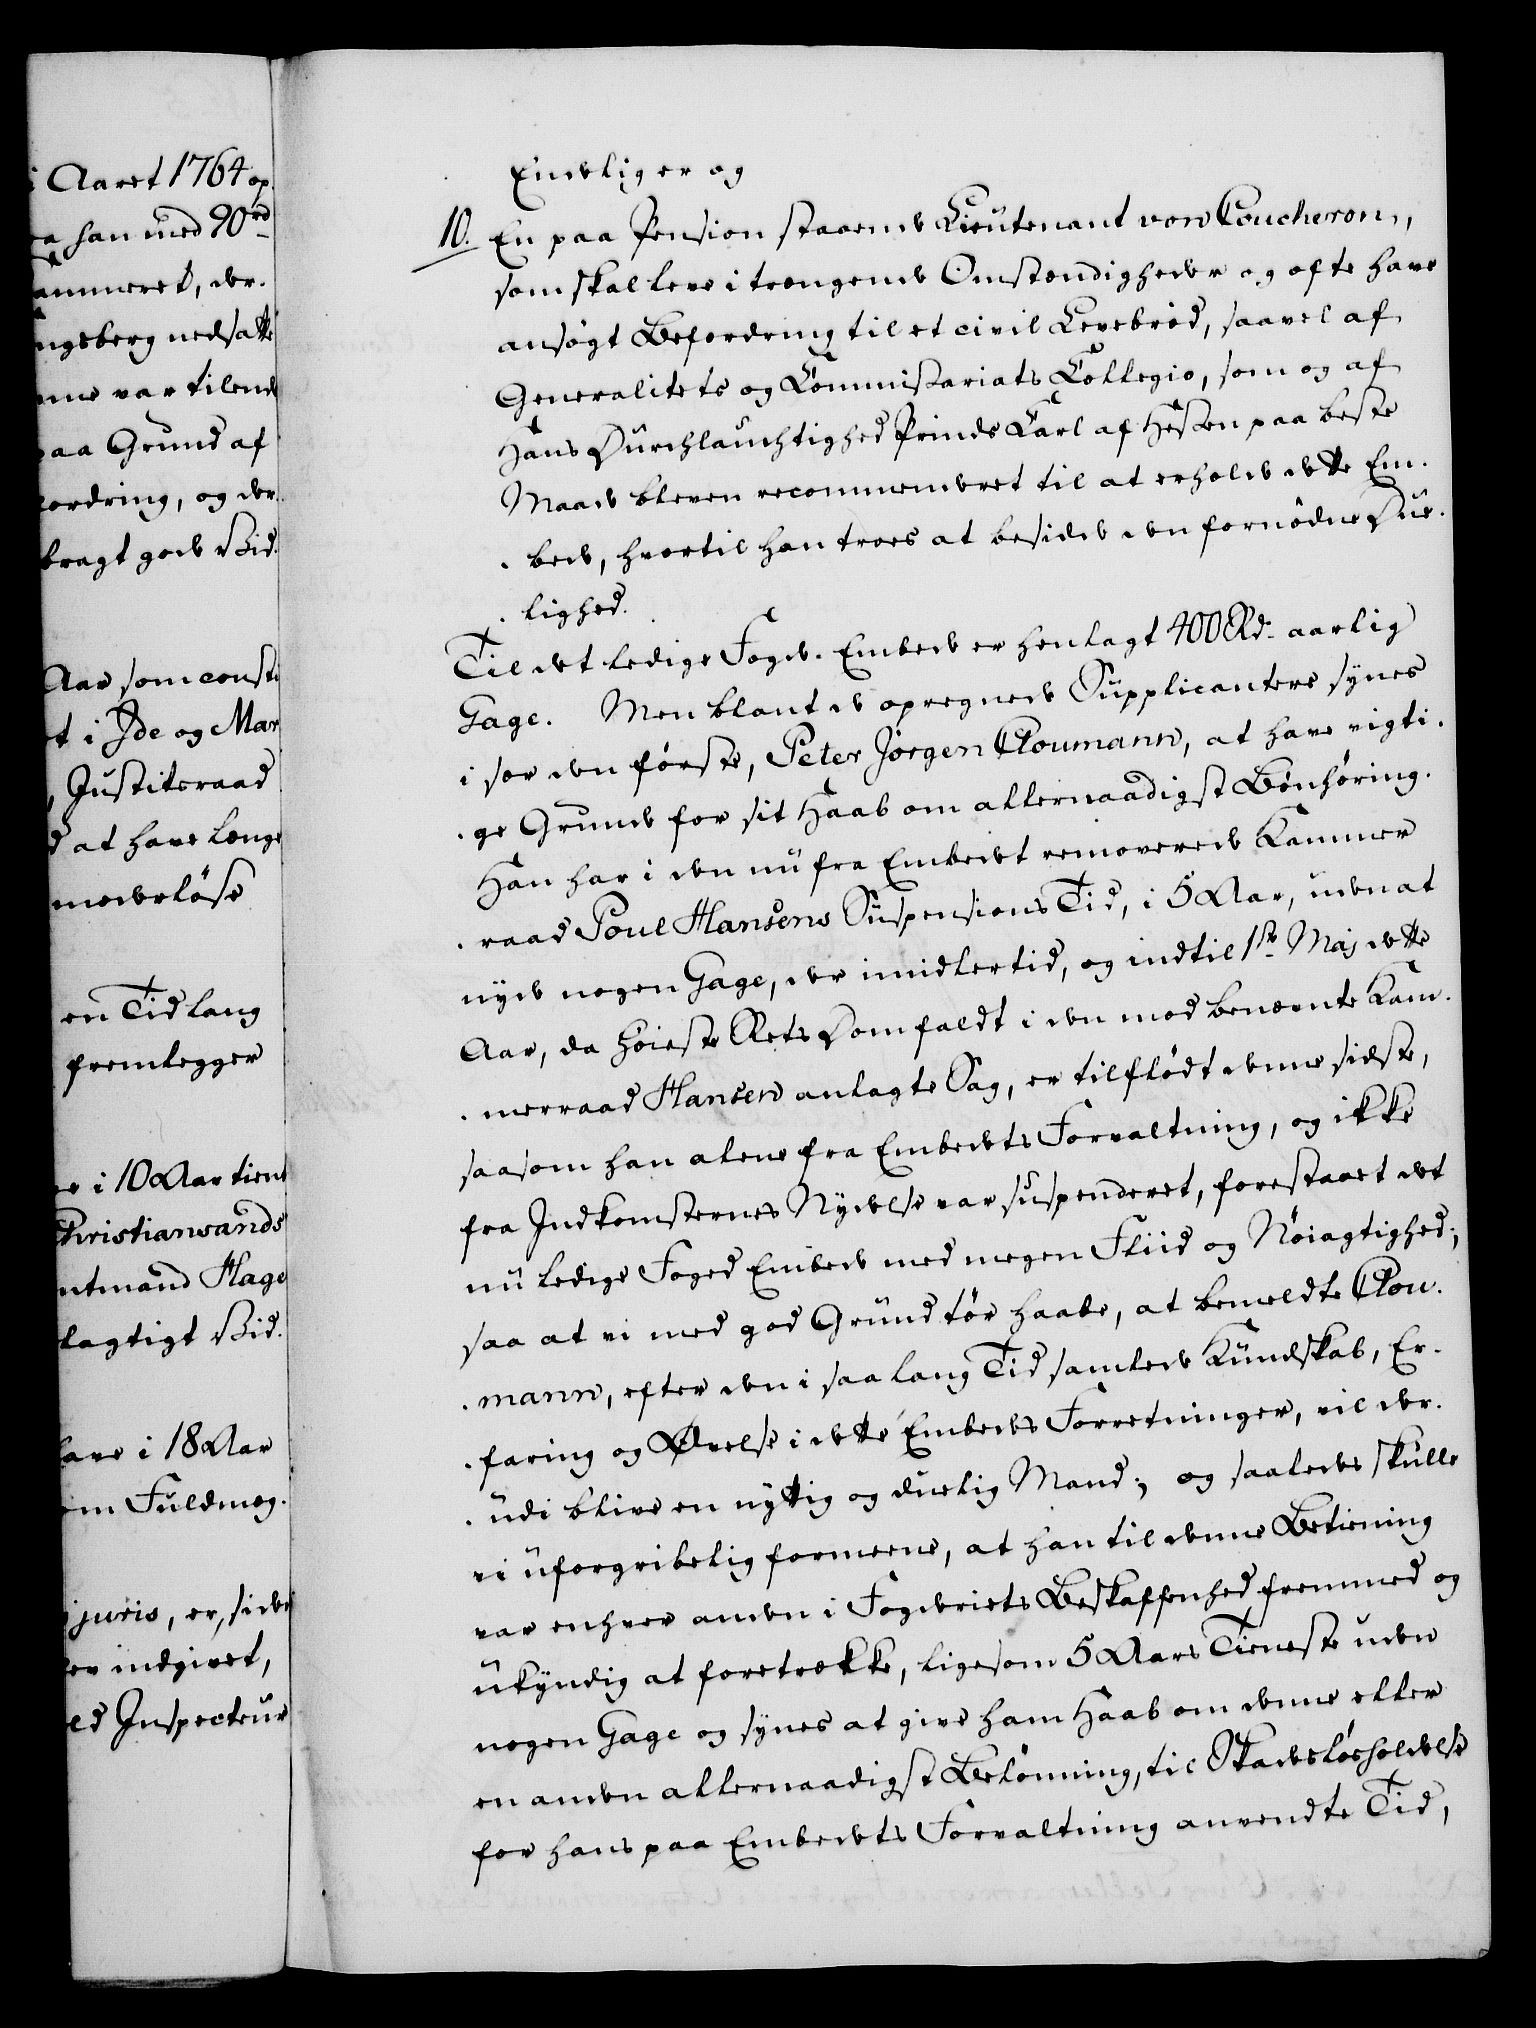 i Aaret 1764 op
han med 90rd
ammeret, der-
ngsberg nedsatte
var tilende
paa Grund af
fordring, og der-
bragt gode Bid-
Aar som const
t i Ide og Mar
, Justitsraad
d at have længe
moderløse
en Tid lang
fremlegger
i 10 Aar tient
Christiansands
ntmand Hage
lagtigt Bid-
have i 18 Aar
om Fuldmæg-
i juris, er, side
indgivet,
ld Inspecteur
Endelig er og
10. En paa Pension staaende Lieutenant von Coucheron,
som skal leve i trængende Omstændigheder og ofte have
ansøgt Befordring til et civil Levebrød, saavel af
Generalitets og Commissariats Collegio, som og af
Hans Durchlauchtighed Prinds Carl af Hessen paa beste
Maade bleven recommenderet til at erholde dette Em-
bede, hvortil han troes at besidde den fornødne Due-
lighed.
Til det ledige Fogd. Embede er henlagt 400 Rd. aarlig
Gage. Men blant de opregnede Supplicantere synes
i sær den første, Peter Jørgen Cloumann, at have vigti-
ge Grunde for sit Haab om allernaadigst Bønhøring.
Han har i den nu fra Embedet removerede Kammer
raad Poul Hansens Suspensions Tid, i 5 Aar, uden at
nyde nogen Gage, der imidlertid, og indtil 1ste Maj dette
Aar, da høieste Rets Dom faldt i den mod benævnte Kam-
merraad Hansen anlagte Sag, er tilflødt denne sidste,
saasom han alene fra Embedets Forvaltning, og ikke
fra Indkomsternes Nydelse var suspenderet, forestaaet det
nu ledige Foged Embede med megen Fliid og Nøiagtighed;
saa at vi med god Grund tør haabe, at bemeldte Clou-
mann, efter den i saa lang Tid samlede Kundskab, Er-
faring og Øvelse i dette Embeds Forretninger, vil der-
udi blive en nyttig og duelig Mand; og saaledes skulle
vi uforgribelig formeene, at han til denne Betiening
var enhver anden i Fogderiets Beskaffenhed fremmed og
ukyndig at foretrække, ligesom 5 Aars Tieneste uden
nogen Gage og synes at give ham Haab om denne eller
en anden allernaadigst Belønning, til Skadesløsholdelse
for hans paa Embedets Forvaltning anvendte Tid,